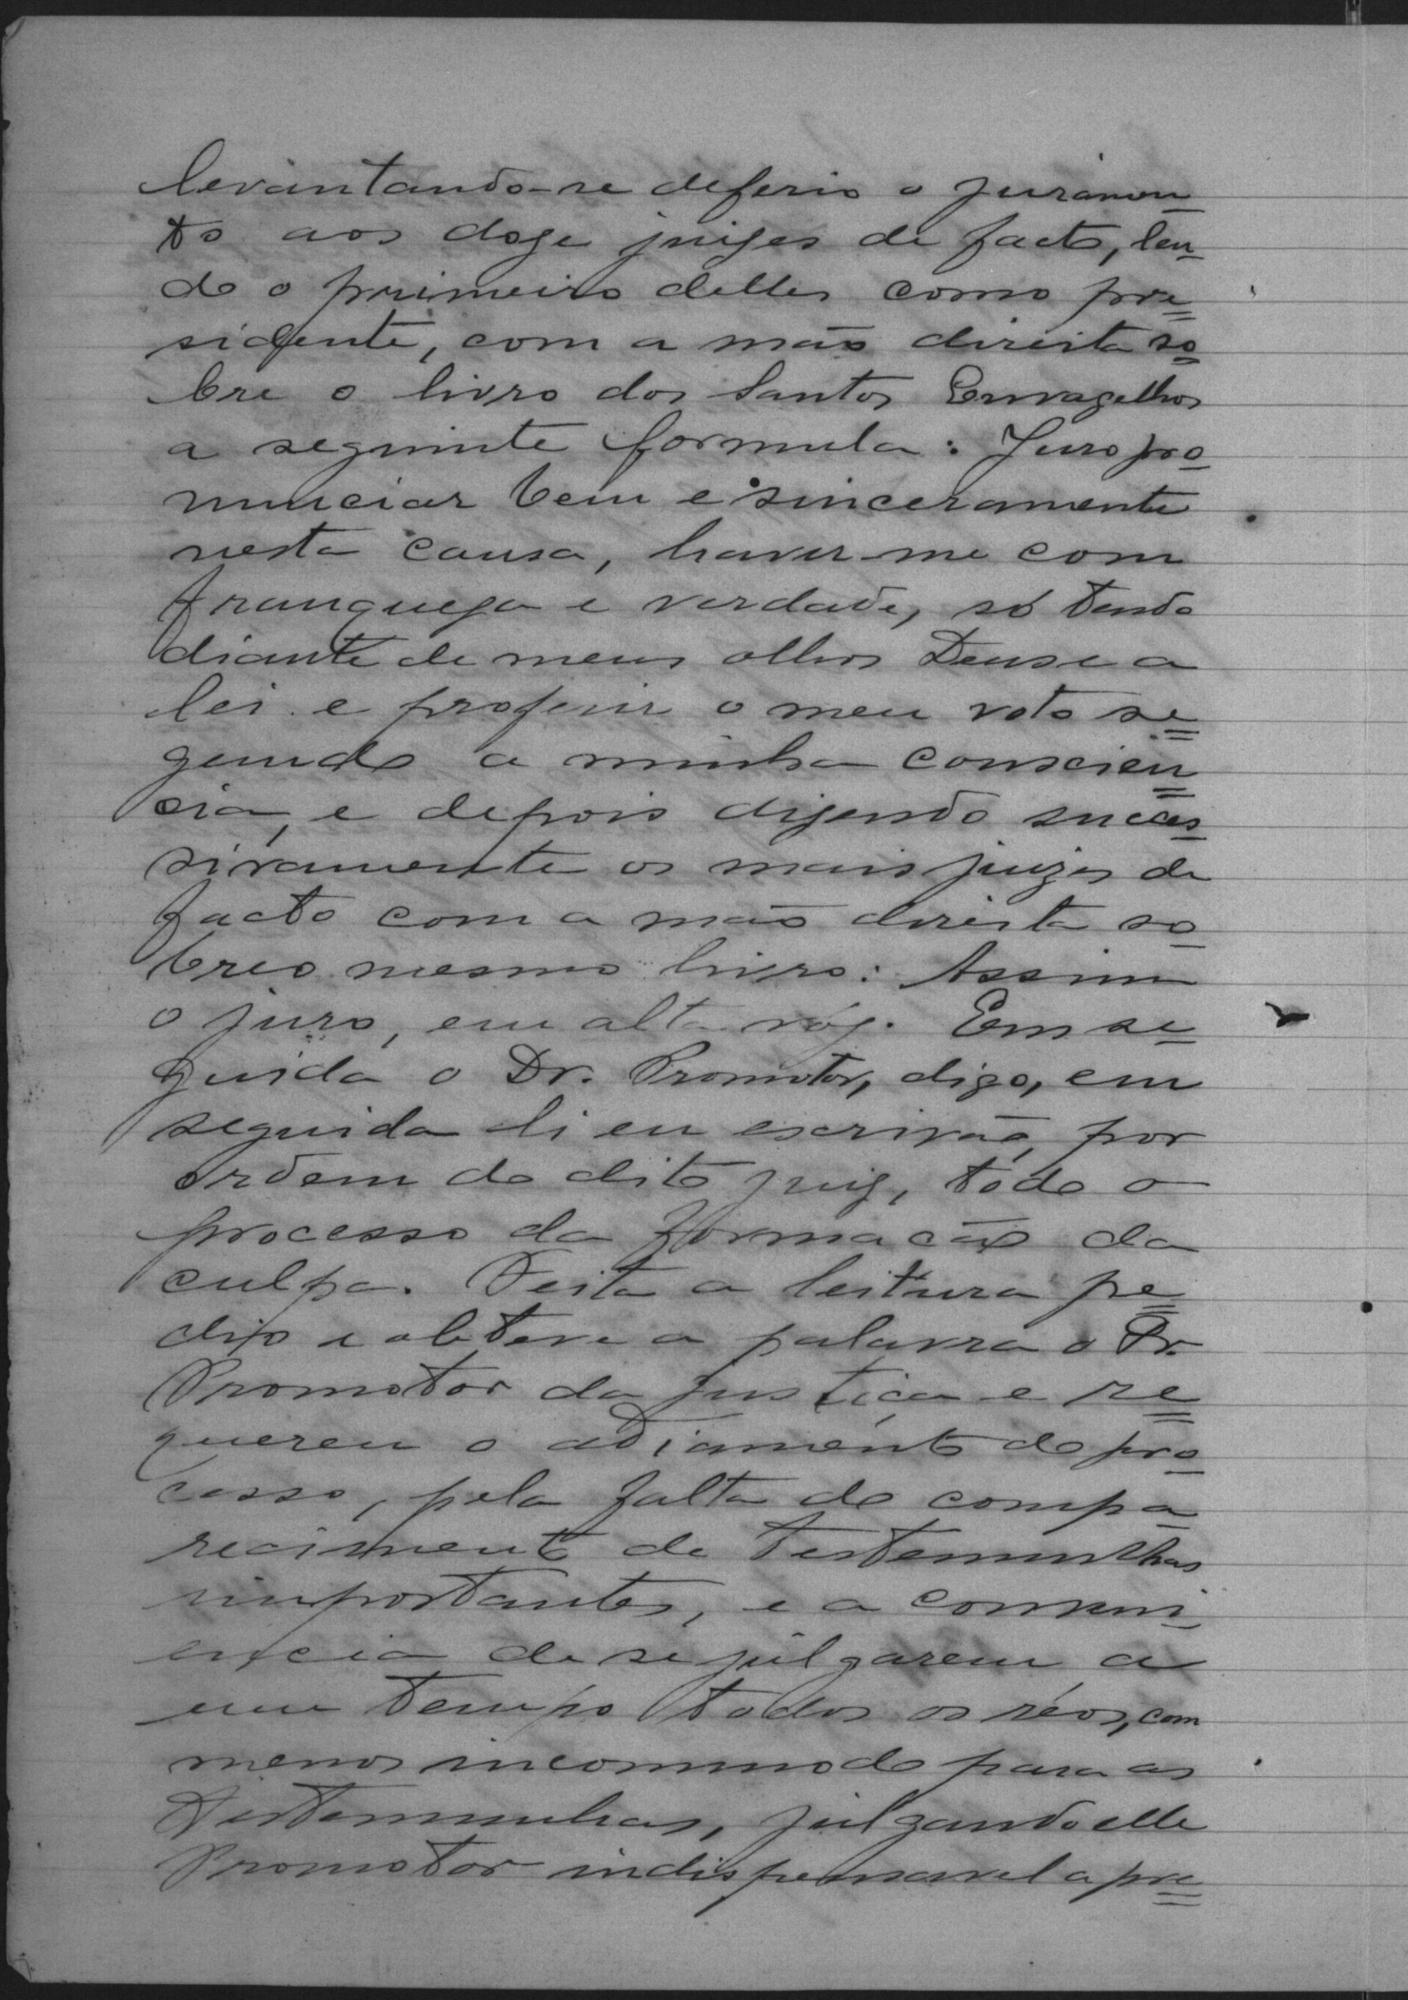 levantando-se deferio o juramen
to aos doze juizes de facto, len
do o primeiro delles como pre
sidente, com a mão direita so
bre o livro dos Santos Envagelhos
a seguinte formula: Juro pro
nunciar bem e sinceramente
nesta causa, haver-me com
franqueza e verdade, só tendo
diante de meus olhos Deus e a
lei e proferir o meu voto se
gundo a minha conscien
cia, e depois dizendo succes
sivamente os mais juizes de
facto com a mão direita so
bre o mesmo livro: Assim
o juro, em alta voz. Em se
guida o Dr. Promotor, digo, em
seguida li eu escrivão, por
ordem do dito juiz, todo o
processo da formacão da
culpa. Feita a leitura pe
dio e obteve a palavra o Dr.
Promotor da justiça e re
quereu o adiamento do pro
cesso, pela falta de compa
recimento de testemunhas
importantes, e a conveni
encia de se julgarem a
um tempo todos os réos, com
menos incommodo para as
testemunhas, julgando elle
Promotor indispensavel a pre